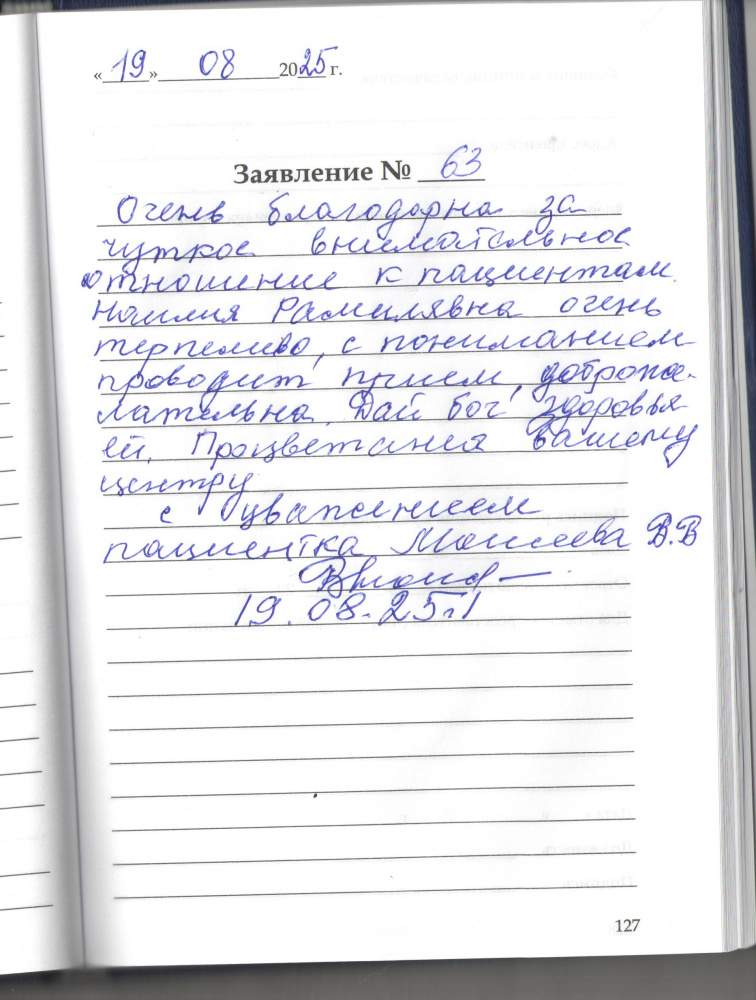 «19» 08 2025 г.
Заявление № 63
Очень благодарна за
чуткое внимательное
отношение к пациентам.
Наилия Рамилявна очень
терпеливо, с пониманием
проводит прием, доброже-
лательна. Дай бог здоровья
ей. Процветания вашему
центру
с уважением
пациентка Моисеева В.В
19.08.25г
127